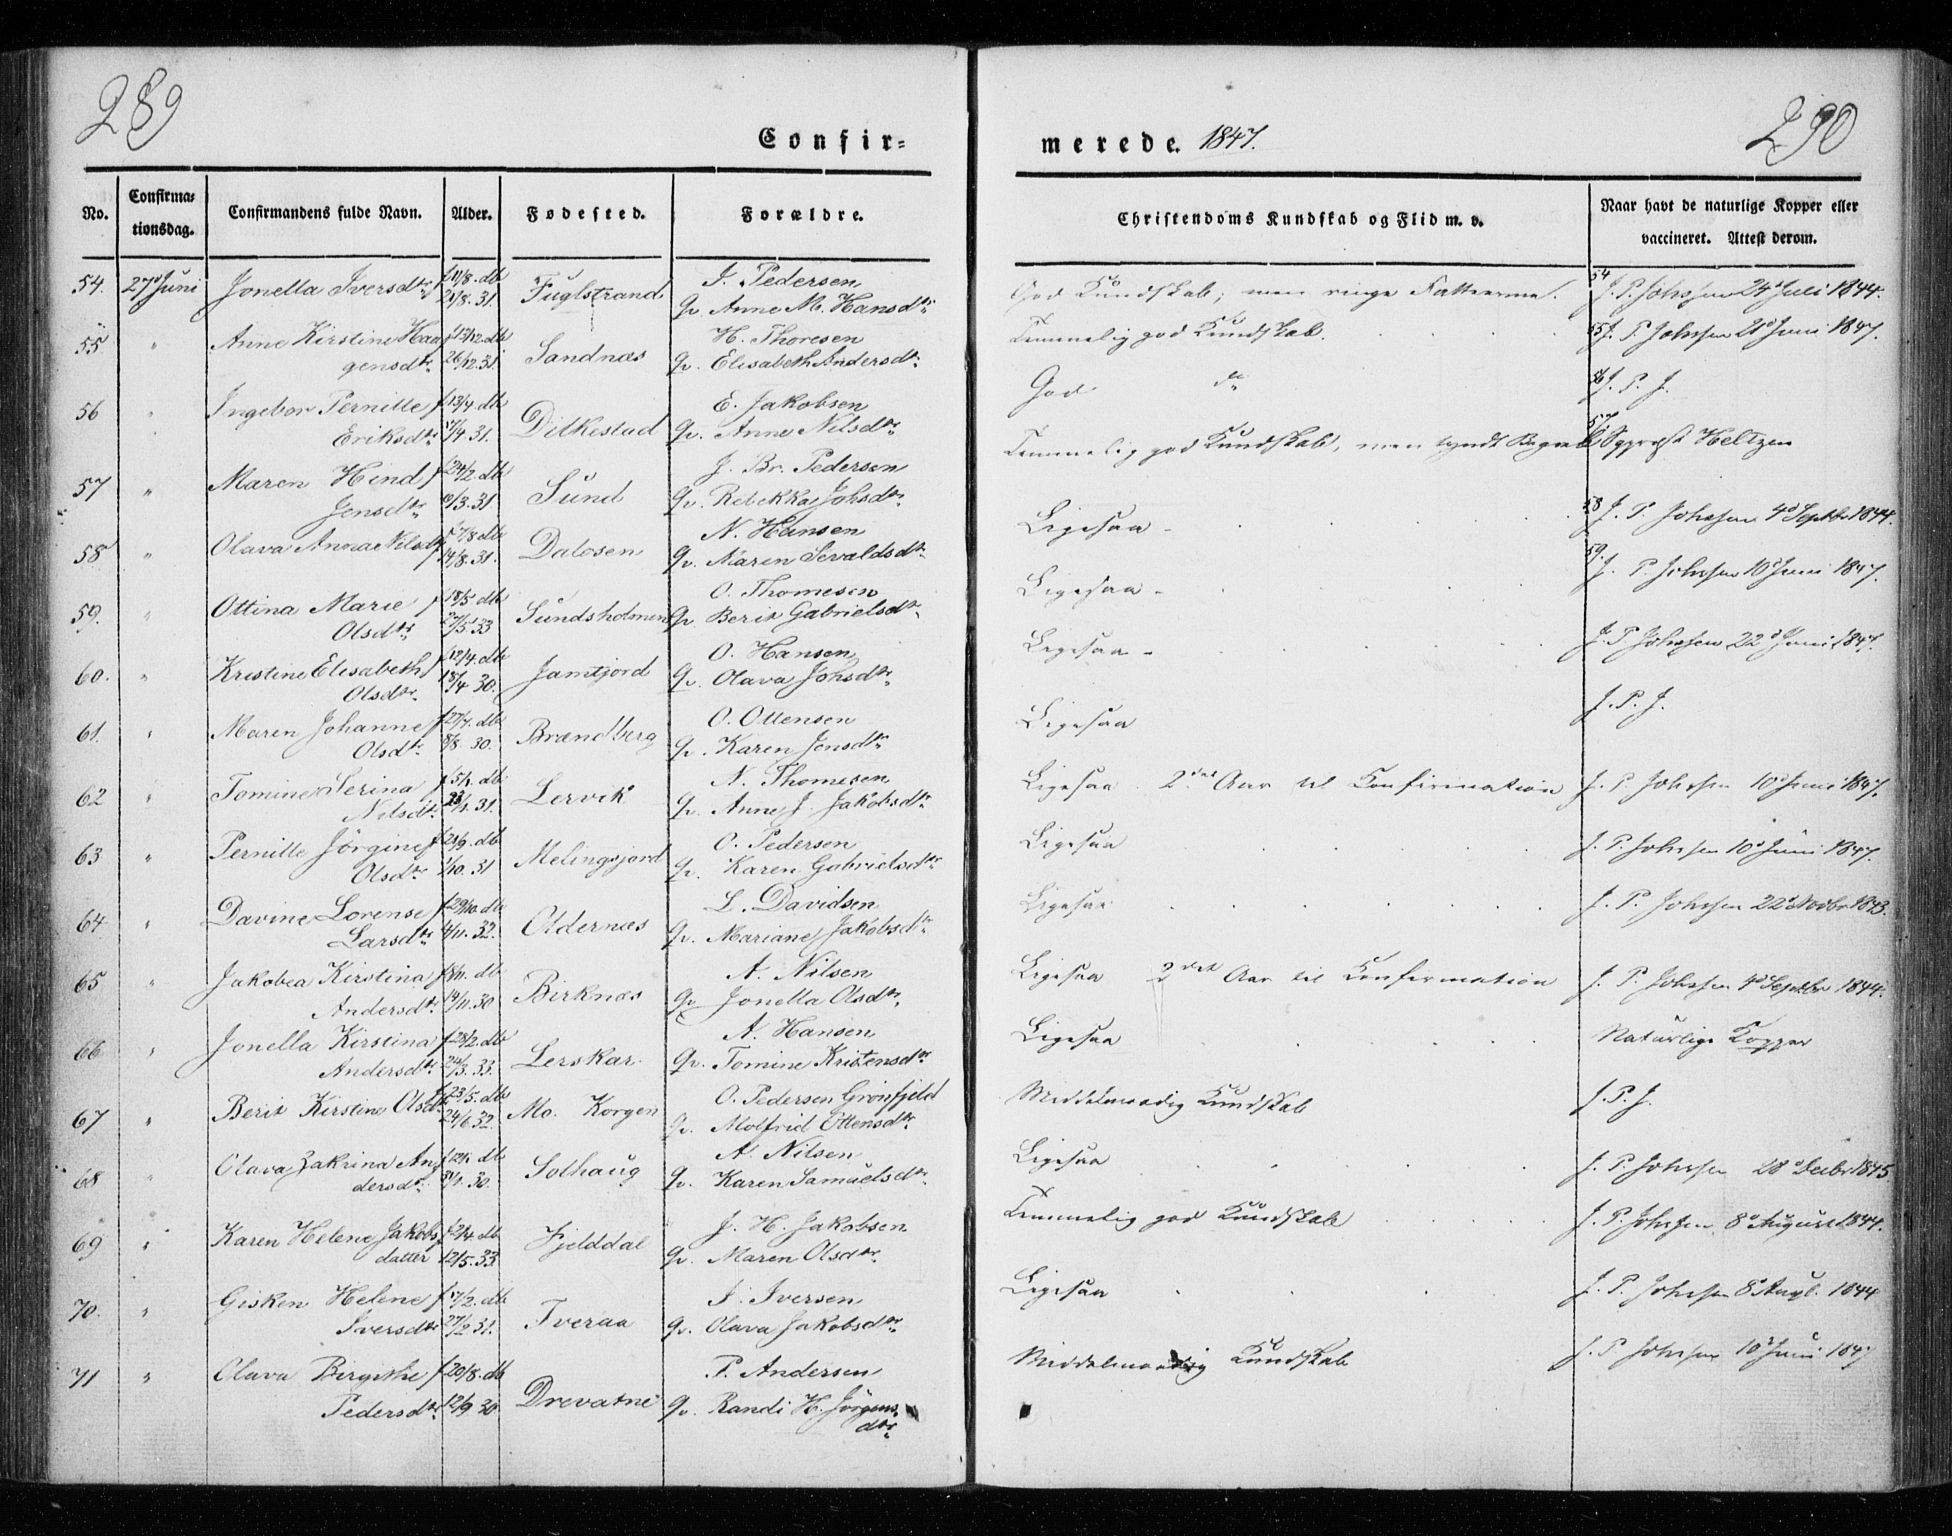 289
290
Confir=
merede. 1847.
No.
Confirma=
tionsdag.
Confirmandens fulde Navn.
Alder.
Fødested.
Forældre.
Christendoms Kundskab og Flid m. v.
Naar havt de naturlige Kopper eller
vaccineret. Attest derom.
54. 27d Juni Jonella Iversdtr f 11/8. db 21/8. 31. Fuglstrand I. Pedersen
Qv. Anne M. Hansdtr
God Kundskab; men ringe Fatteevne. 54 J. P. Johssen 24d Juli 1844.
55 " Anne Kirstine Haa
gensdtr f 13/12. db 26/12. 31. Sandnæs H. Thoresen
Qv. Elisabeth Andersdtr
Temmelig god Kundskab. 55 J. P. Johssen 21d Juni 1847.
56 " Ingebor Pernille
Eriksdtr f 13/4. db 17/4 31. Ditkestad E. Jakobsen
Qv. Anne Nilsdtr
God do 56 J. P. J.
57 " Maren Hend
Jensdtr f 24/2. db 10/3. 31 Sund J. Br. Pedersen
Qv. Rebekka Johsdtr
Temmelig god Kundskab, men tyndt Begreb 57 Sgprst Heltzen
58 " Olava Annae Nilsdtr f 7/8 db 14/8. 31. Dalosen N. Hansen
Qv. Maren Sevaldsdtr
Ligesaa 58 J. P. Johssen 4d Septbr 1844.
59. " Ottina Marie
Olsdtr f 18/5 db 27/5 33 Sundsholmen O. Thomesen
Qv. Berit Gabrielsdtr
Ligesaa 59. J. P. Johssen 10d Juni 1847.
60. " Kristine Elisabeth
Olsdtr f 12/4. db 18/4 30. Jamtjord O. Hansen
Qv. Olava Johsdtr
Ligesaa J. P. Johssen 22d Juni 1847.
61. " Maren Johanne
Olsdtr f 27/7. db 8/8 30. Brændberg O. Ottensen
Qv. Karen Jensdtr
Ligesaa J. P. J.
62 " Tomine Serina
Nilsdtr f 5/1. db 23/1. 31. Lervik N. Thomesen
Qv. Anne J. Jakobsdtr
Ligesaa 2det Aar til Confirmation J. P. Johssen 10d Juni 1847.
63 " Pernille Jørgine
Olsdtr f 21/9. db 1/10. 31 Melingsjord O. Pedersen
Qv. Karen Gabrielsdtr
Ligesaa J. P. Johssen 10d Juni 1847.
64 " Davine Lorense
Larsdtr f 29/10. db 4/11. 32. Oldernæs L. Davidsen
Qv. Mariane Jakobsdtr
Ligesaa J. P. Johssen 22d Novbr 1843.
65 " Jakobea Kirstina
Andersdtr f 8/11. db 14/11. 30 Birknæs A. Nilsen
Qv. Jonella Olsdtr
Ligesaa 2det Aar til Confirmation J. P. Johssen 4d Septbr 1844.
66 " Jonella Kirstina
Andersdtr f 28/2. db 24/3. 33. Lerskar A. Hansen
Qv. Tomine Kristensdtr
Ligesaa Naturlige Kopper
67 " Berit Kirstine Olsdtr f 23/5. db 24/6 32. Mo. Korgen O. Pedersen Grønfjeld
Qv. Molfrid Ottensdtr
Middelmaadig Kundskab J. P. J.
68 " Olava Zakrina An
dersdtr db 31/1. 30. Solhaug A. Nilsen
Qv. Karen Samuelsdtr
Ligesaa J. P. Johssen 28d Decbr 1845
69 " Karen Helene Jakobs
datter f 21/4 db 12/5. 33. Fjelddal J. H. Jakobsen
Qv. Maren Olsdtr
Temmelig god Kundskab J. P. Johssen 8d August 1844.
70. " Gisken Helene
Iversdtr f 17/2. db 27/2 31. Tveraa I. Iversen
Qv. Olava Jakobsdtr
Ligesaa J. P. Johssen 8d Augt. 1844
71 " Olava Birgithe
Pedersdtr f 20/8. db 12/9 30 Drevatne P. Andersen
Qv. Randi H. Jörgens
dtr
Middelmaadig Kundskab J. P. Johssen 10d Juni 1847